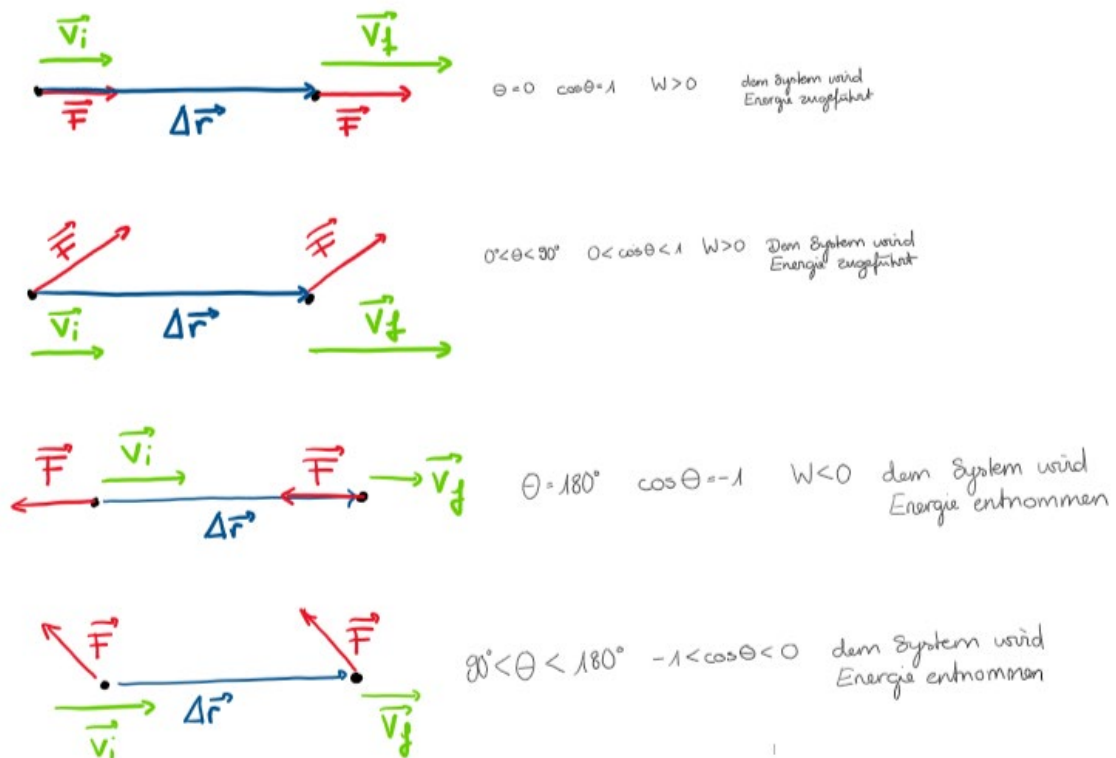 v⃗i v⃗f
θ=0 cosθ=1 W>0 dem System wird
Energie zugeführt
F⃗ Δr⃗ F⃗
F⃗ F⃗
0°<θ<90° 0<cosθ<1 W>0 Dem System wird
Energie zugeführt
v⃗i Δr⃗ v⃗f
F⃗ v⃗i F⃗ v⃗f
θ=180° cosθ=-1 W<0 dem System wird
Energie entnommen
Δr⃗
F⃗ F⃗
90°<θ<180° -1<cosθ<0 dem System wird
Energie entnommen
v⃗i Δr⃗ v⃗f